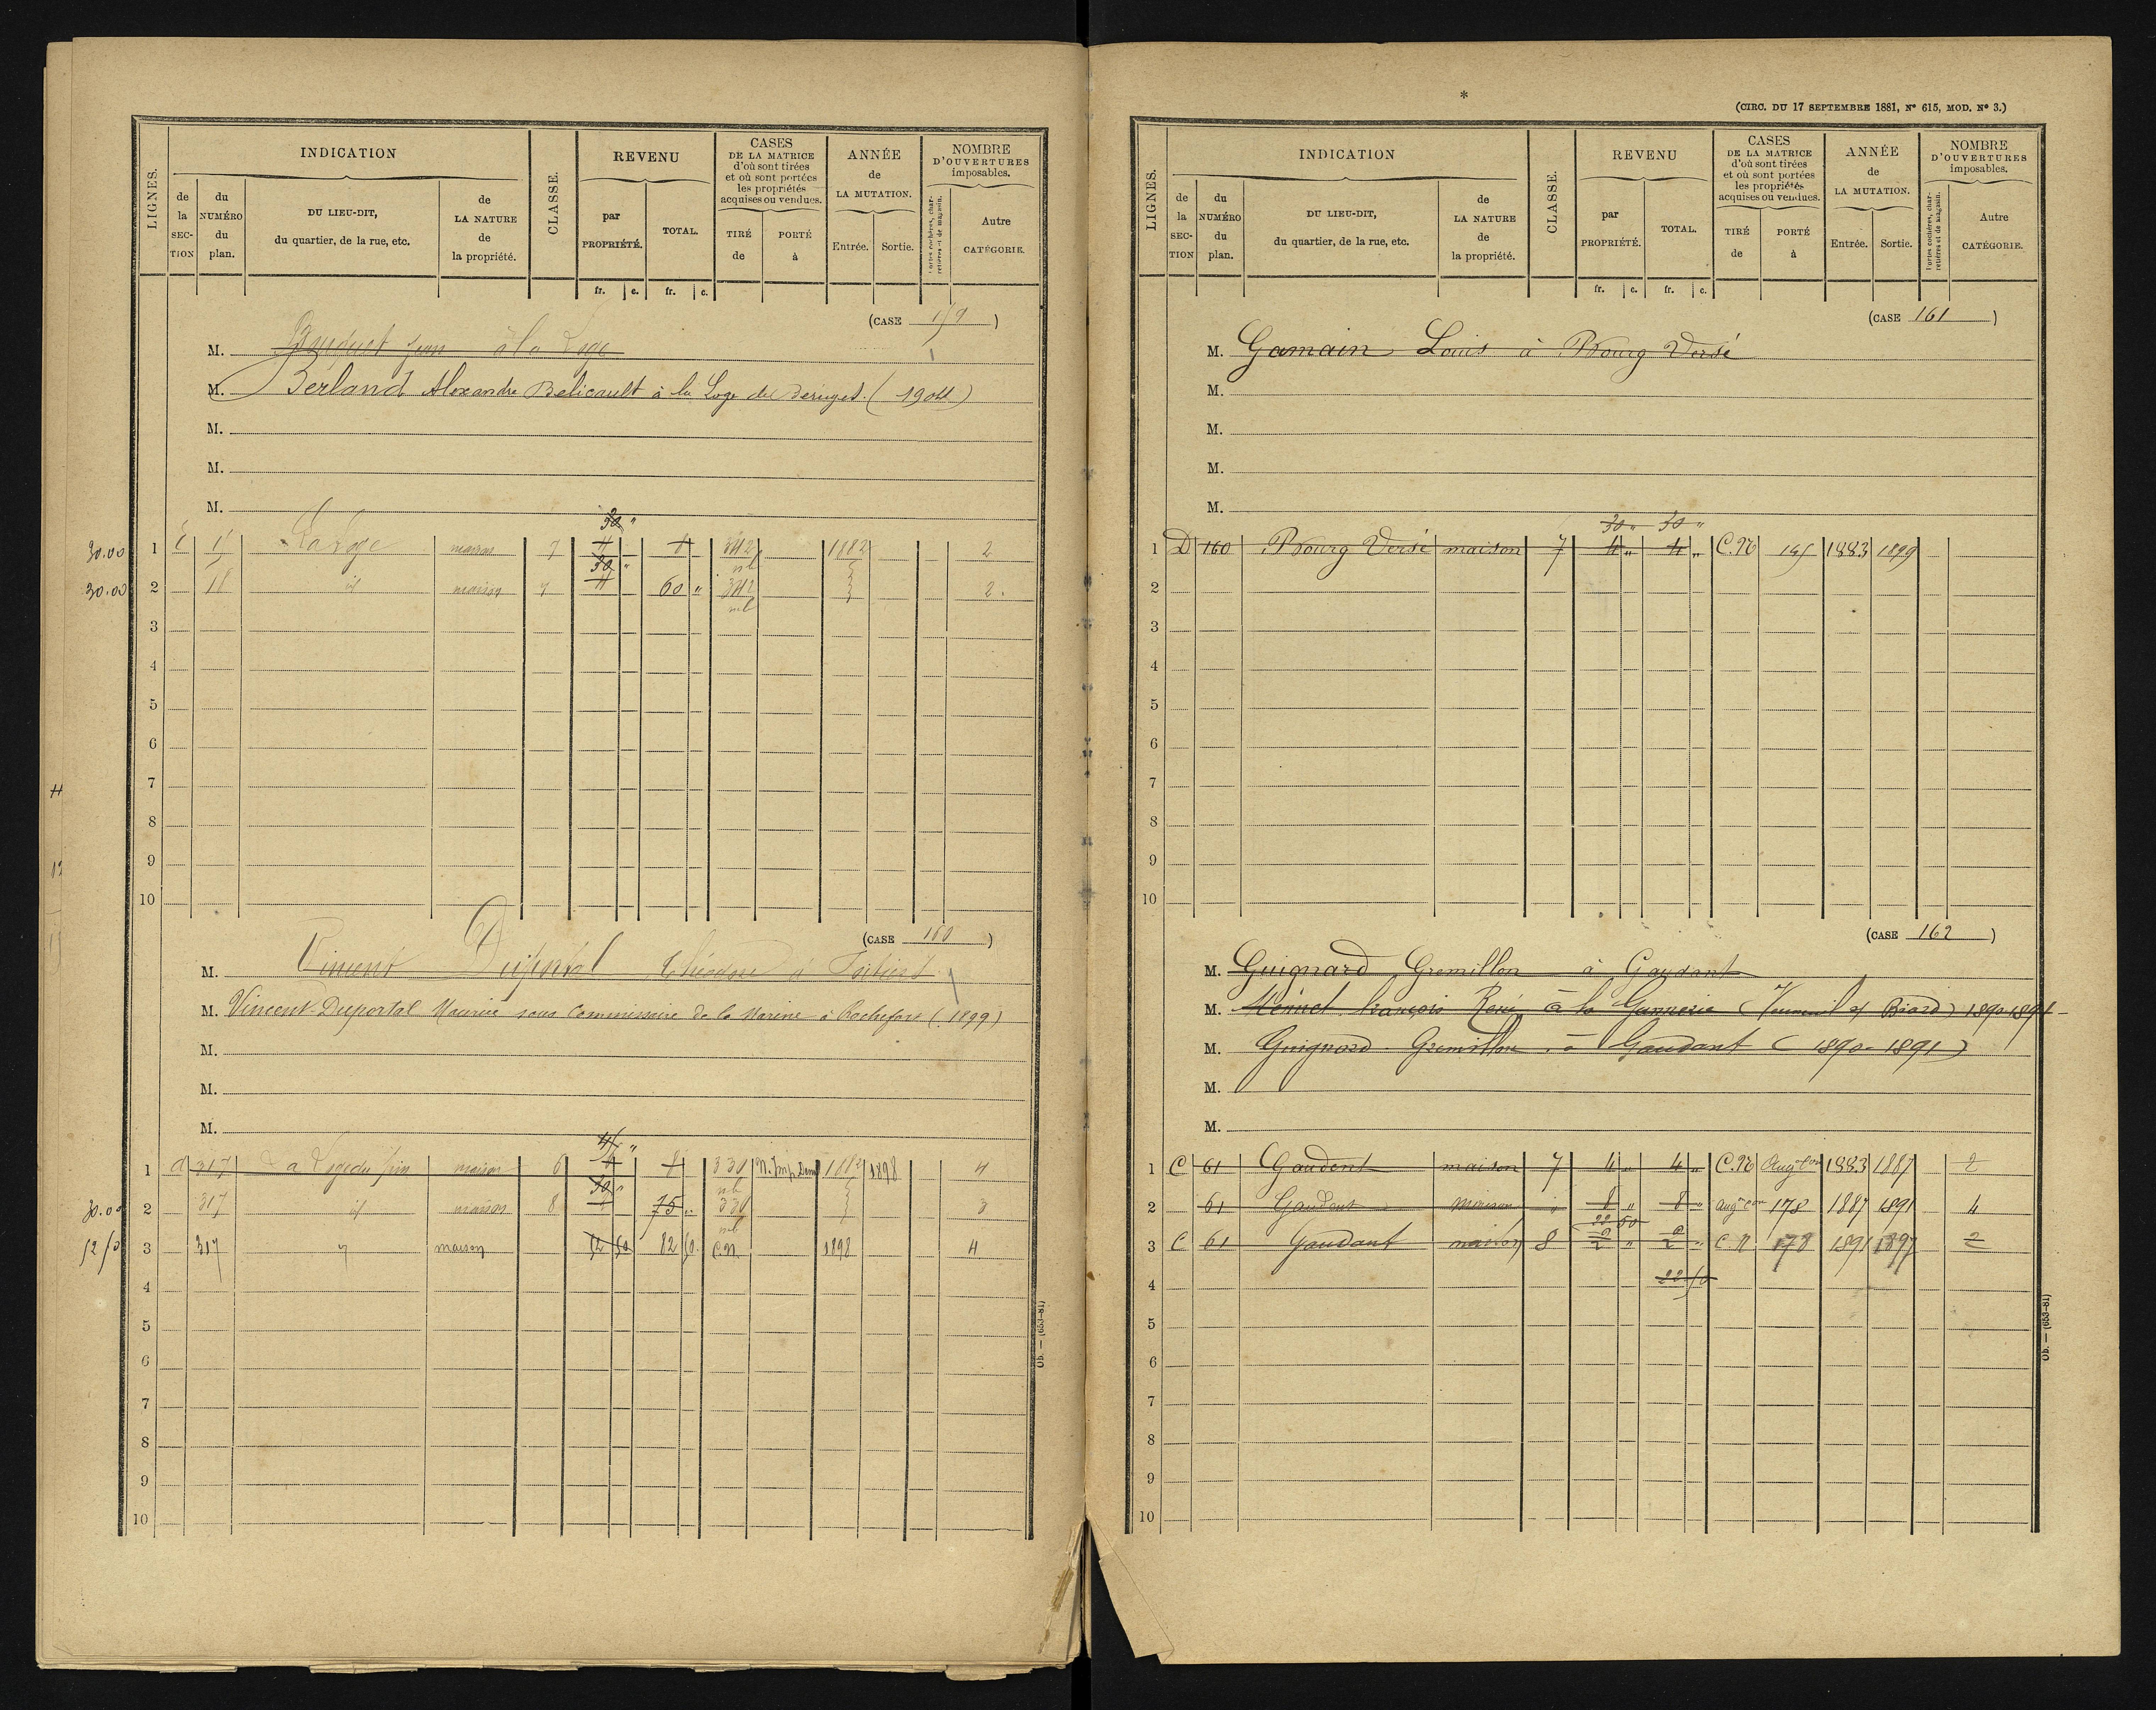 LIGNES.
INDICATION
de la SECTION
du NUMÉRO du plan.
DU LIEU-DIT, du quartier, de la rue, etc.
de LA NATURE de la propriété.
CLASSE.
REVENU
par PROPRIÉTÉ.
TOTAL.
CASES DE LA MATRICE d'où sont tirées et où sont portées les propriétés acquises ou vendues.
TIRÉ de
PORTÉ à
ANNÉE de LA MUTATION.
Entrée.
Sortie.
NOMBRE D'OUVERTURES imposables.
Portes cochères, charretières et de magasin.
Autre CATÉGORIE.
fr. c. fr. c.
(CASE 159)
M. à la Loge
M. Berland Alexandre Belicault à la Loge (1904)
M.
M.
M.
30 "
30.00 1 15 La Loge maison 7 4 8 342 1882 2
30 " nb
30.00 2 18 id maison 7 4 60 " 342 2
nb
3
4
5
6
7
8
9
10
(CASE 160)
M. Vincent Duportal Théodore à Poitiers
M. Vincent-Duportal Maurice sous Commissaire de la Marine à Rochefort (1899)
M.
M.
M.
45 "
1 317 maison 6 8 330 1882 1898 4
30 " nb
30.00 2 317 id maison 8 75 " 330 3
nb
52 50 3 317 " maison 52 50 82 50 C.N. 1898 4
4
5
6
7
8
9
10
Ob. — (653-81)
*
(CIRC. DU 17 SEPTEMBRE 1881, Nº 615, MOD. Nº 3.)
LIGNES.
INDICATION
de la SECTION
du NUMÉRO du plan.
DU LIEU-DIT, du quartier, de la rue, etc.
de LA NATURE de la propriété.
CLASSE.
REVENU
par PROPRIÉTÉ.
TOTAL.
CASES DE LA MATRICE d'où sont tirées et où sont portées les propriétés acquises ou vendues.
TIRÉ de
PORTÉ à
ANNÉE de LA MUTATION.
Entrée.
Sortie.
NOMBRE D'OUVERTURES imposables.
Portes cochères, charretières et de magasin.
Autre CATÉGORIE.
fr. c. fr. c.
(CASE 161)
M. Gamain Louis à Bourg Versé
M.
M.
M.
M.
30 " 30 "
1 D 160 Bourg Versé maison 7 4 " 4 " C.N 145 1883 1899
2
3
4
5
6
7
8
9
10
(CASE 162)
M. Guignard Gremillon à Gaudant
M. François René à la Gannerie 1890-1891
M. Guignard Gremillon à Gaudant (1890-1891)
M.
M.
1 C 61 Gaudent maison 7 4 " 4 " C.N Augtion 1883 1887 2
2 61 Gaudent maison " 8 " 8 " augtion 178 1887 1891 4
22 50
3 C 61 Gaudant maison 8 2 " 2 " C.N 178 1891 1897 2
4 22 50
5
6
7
8
9
10
Ob. — (653-81)